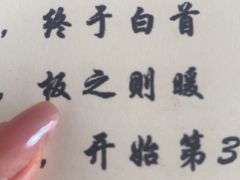 ，终于白首
，板之则暖
，开始第3